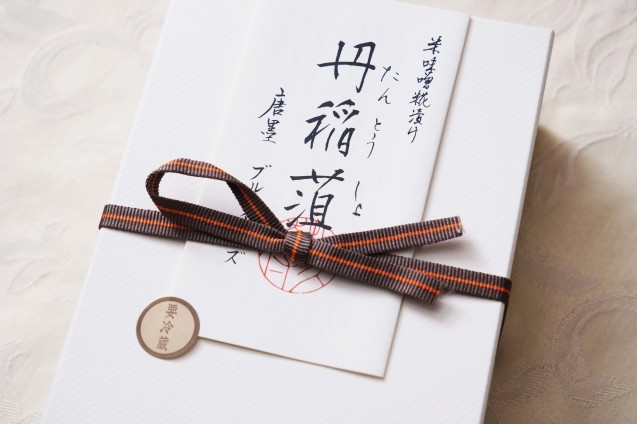 米味噌糀漬け
たんとうしょ
丹稲菹
唐墨
ブル ズ
要冷蔵